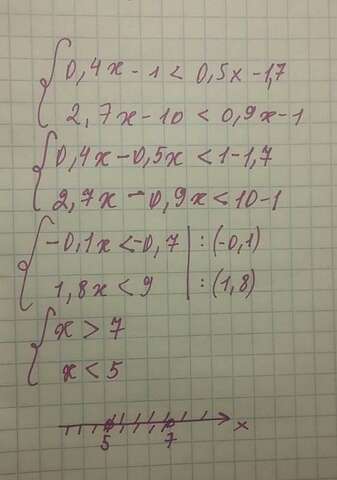 0,4x - 1 < 0,5x - 1,7
2,7x - 10 < 0,9x - 1
0,4x - 0,5x < 1 - 1,7
2,7x - 0,9x < 10 - 1
-0,1x < -0,7 | : (-0,1)
1,8x < 9 | : (1,8)
x > 7
x < 5
5 7 x